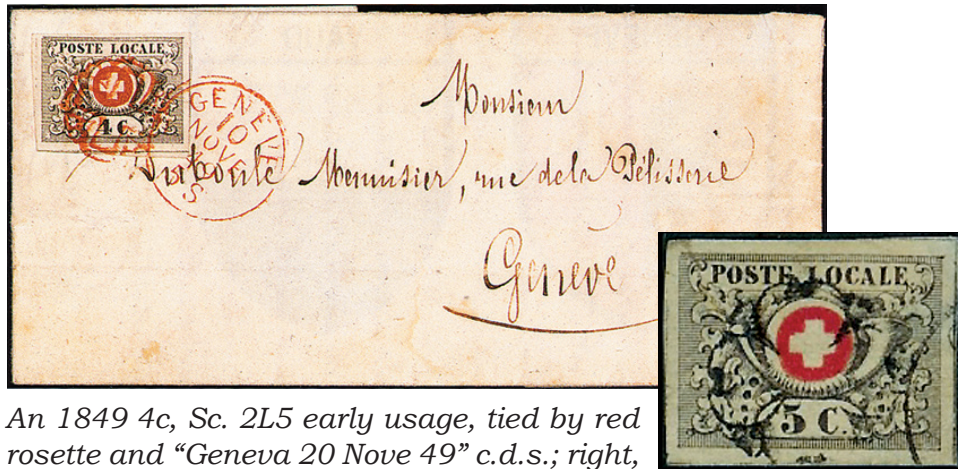 POSTE LOCALE
4 C.
GENÈVE
10
NOVE
Monsieur
Menuisier, rue de la Pélisserie
Genève
POSTE LOCALE
5 C.
An 1849 4c, Sc. 2L5 early usage, tied by red
rosette and “Geneva 20 Nove 49” c.d.s.; right,